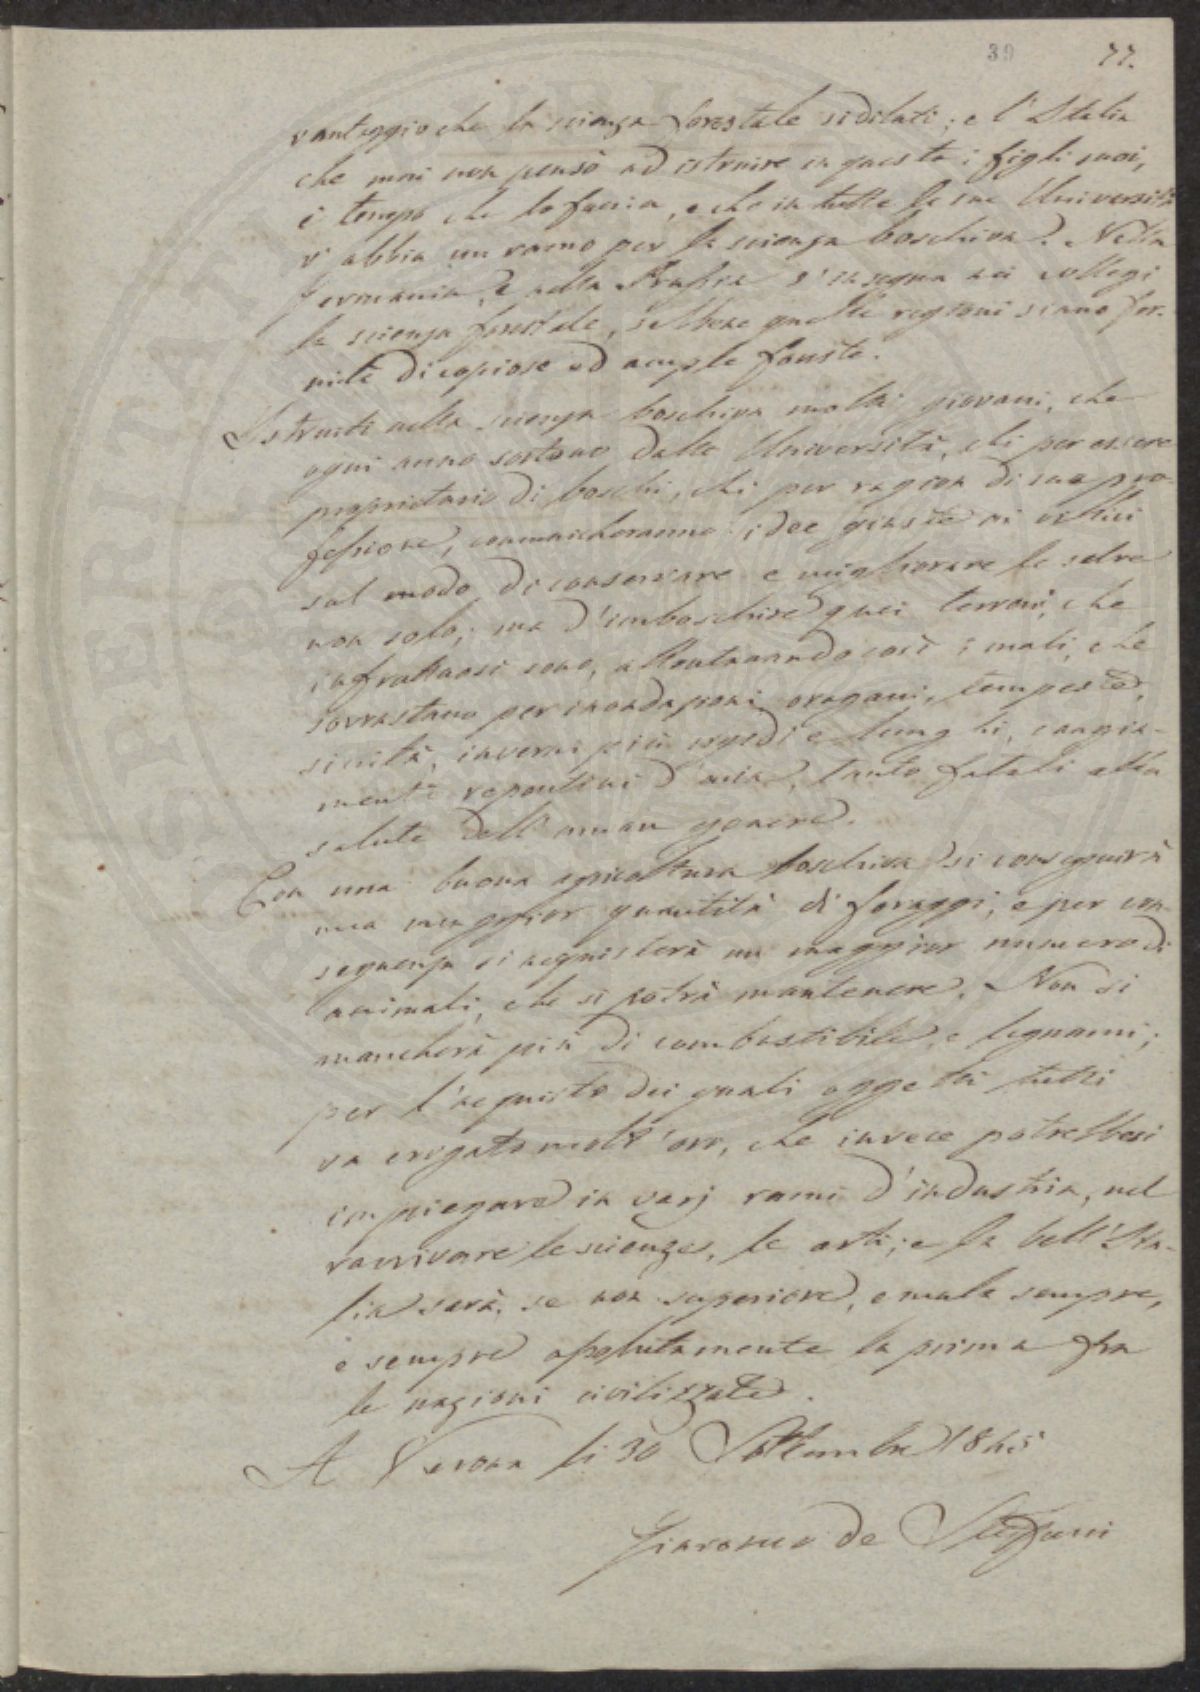 39 77.
vantaggio che la scienza forestale si dilati; e l'Italia
che mai non pensò ad istruire in questa i figli suoi,
è tempo che lo faccia, e che in tutte le sue Università
v'abbia un ramo per la scienza boschiva. Nella
Germania, e nella s'insegna nei collegi
la scienza forestale, sebbene quelle regioni siano for-
nite di copiose ed ample foreste.
Istruiti nella scienza boschiva molti giovani, che
ogni anno sortono dalle Università, chi per essere
proprietario di boschi, chi per ragion di sua pro-
fessione, comunicheranno idee giuste ai villici
sul modo di conservare e migliorare le selve
non solo; ma d'imboschire quei terreni, che
infruttuosi sono, allontanando così i mali, che
sovrastano per inondazioni, oragani, tempeste,
siccità, inverni più rigidi e lunghi, cangia-
menti repentini d'aria, tanto fatali alla
salute dell'uman genere.
Con una buona agricoltura boschiva si conseguirà
una maggior quantità di foraggi, e per con-
seguenza si acquisterà un maggior numero di
animali, che si potrà mantenere. Non si
mancherà più di combustibile, e legnami;
per l'acquisto dei quali oggetti tutti
va erogato molt'oro, che invece potrebbesi
impiegare in varj rami d'industria, nel
ravvivare le scienze, le arti; e la bell'Ita-
lia sarà, se non superiore, emula sempre,
e sempre assolutamente la prima fra
le nazioni civilizzate.
A Verona li 30 Settembre 1845
de Stefani